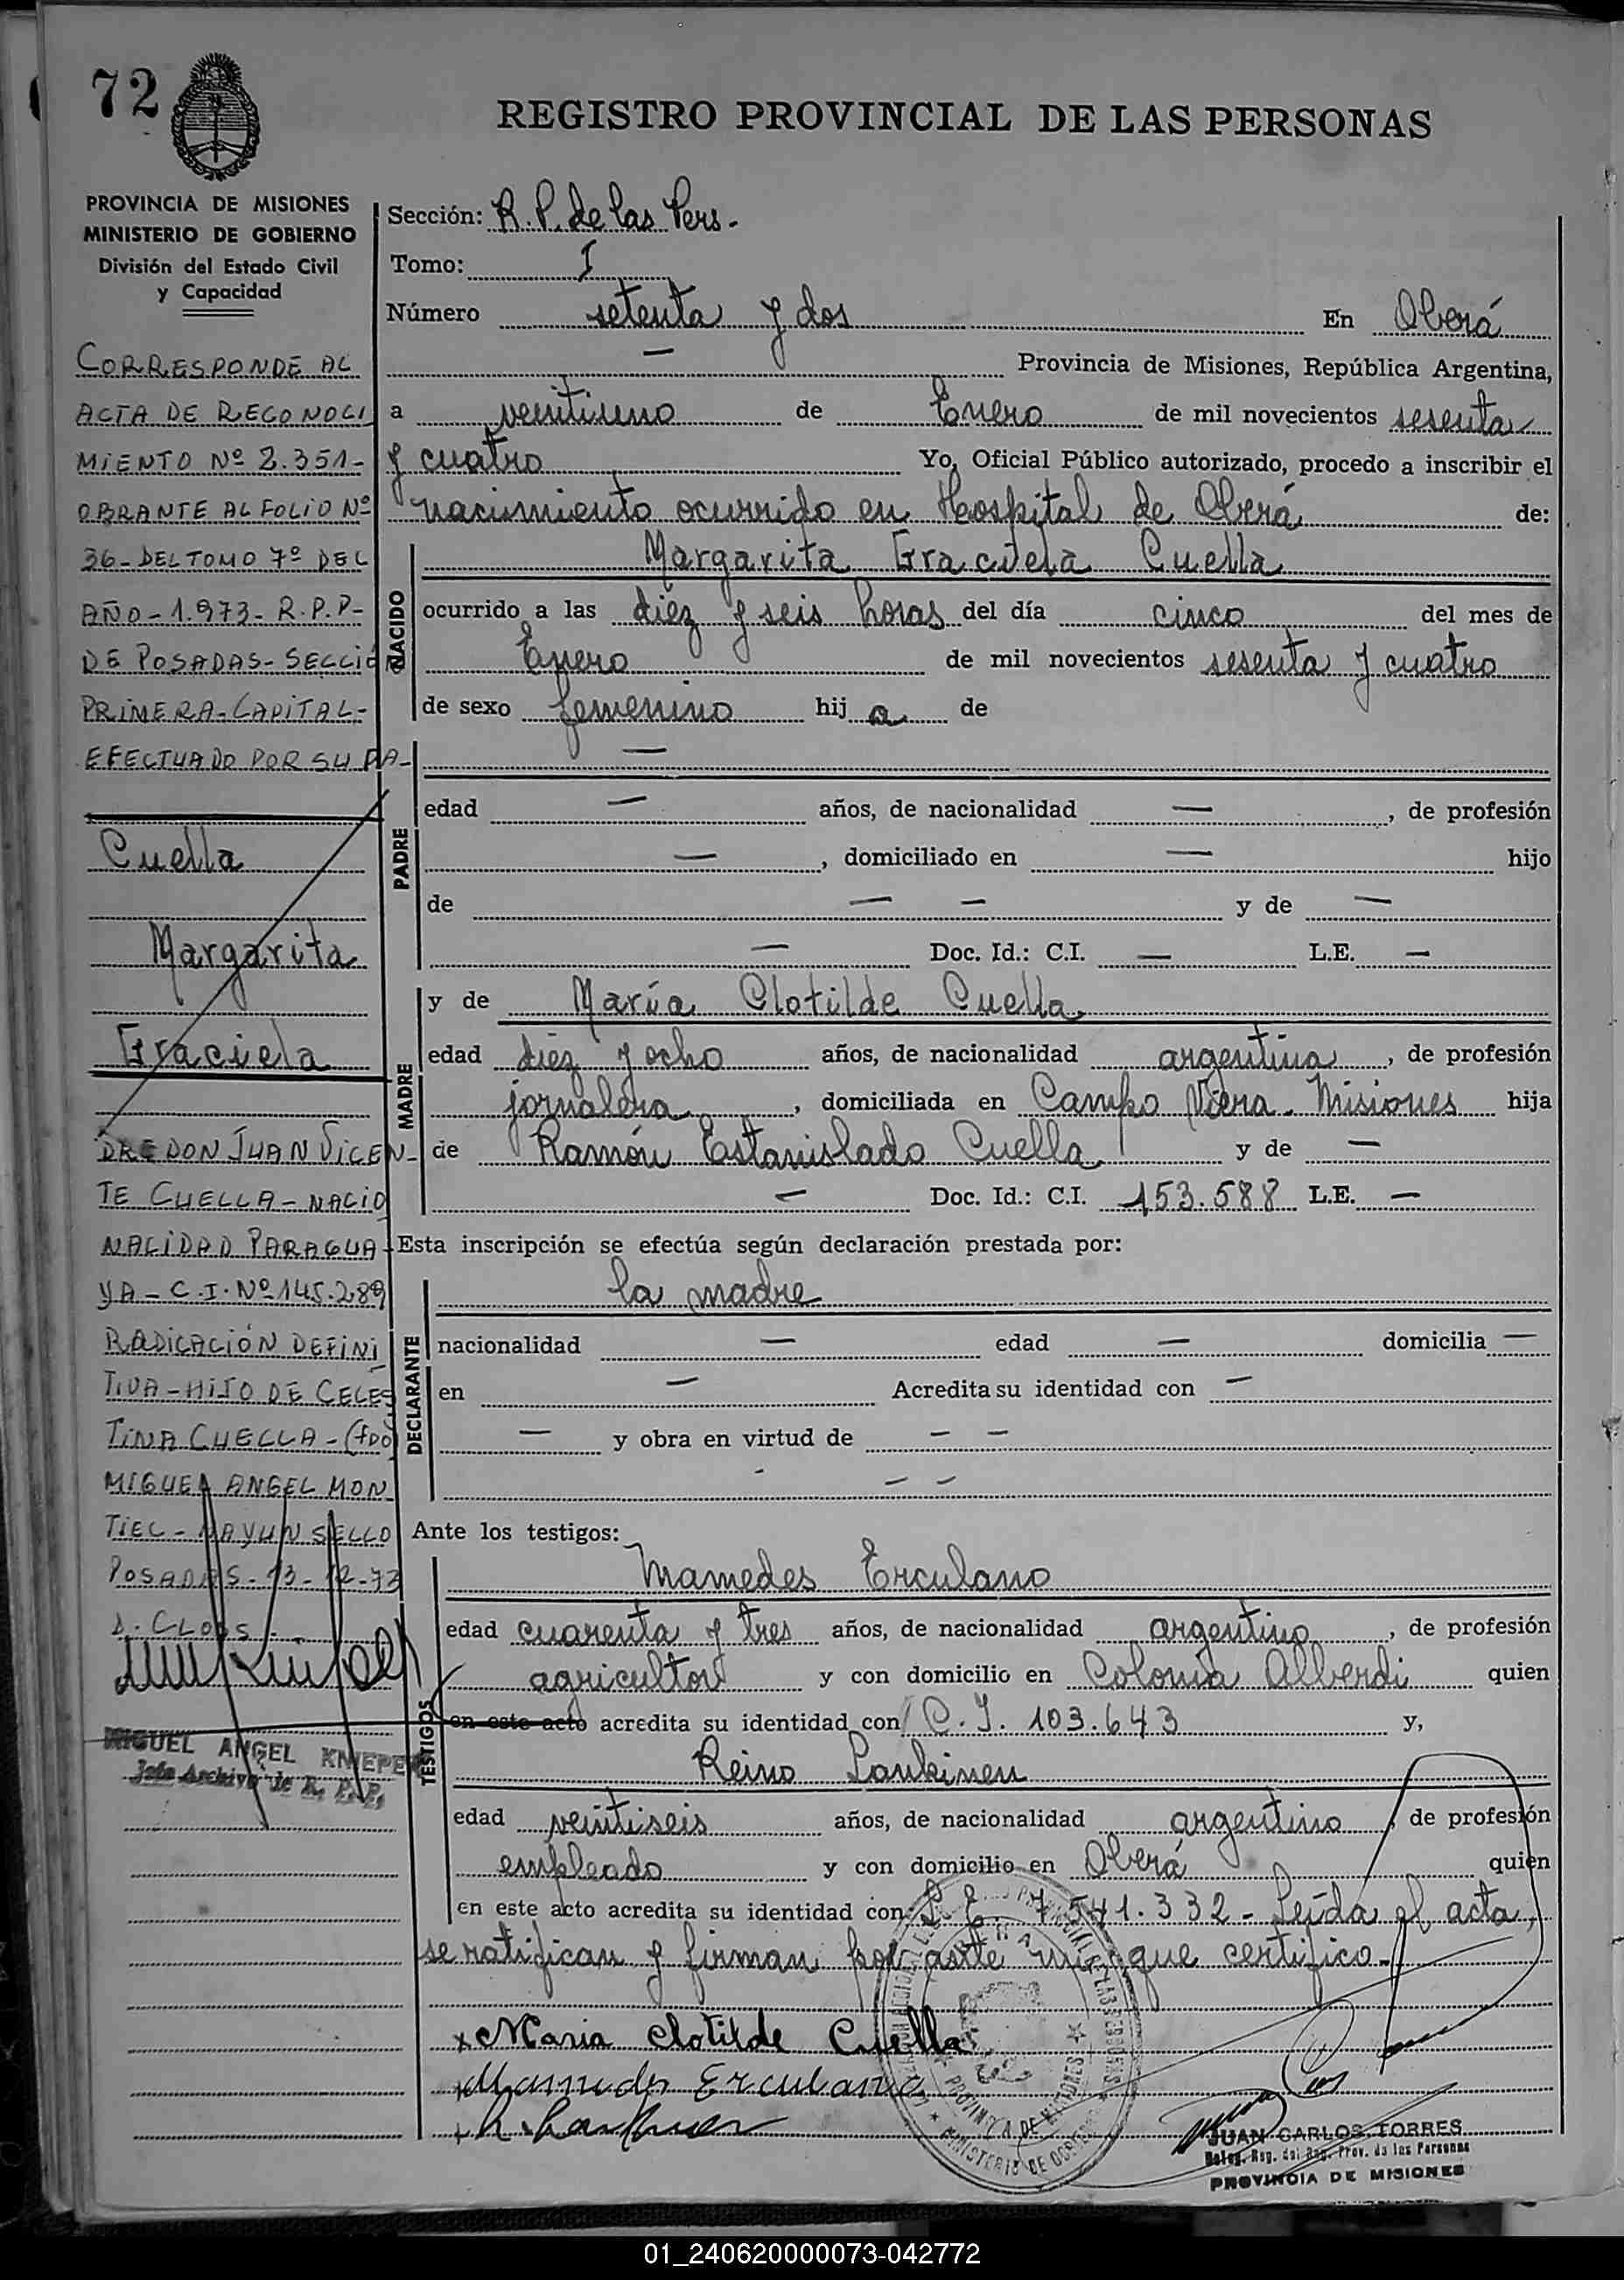 72
REGISTRO PROVINCIAL DE LAS PERSONAS
PROVINCIA DE MISIONES
MINISTERIO DE GOBIERNO
División del Estado Civil
y Capacidad
CORRESPONDE AL
ACTA DE RECONOCI
MIENTO Nº 2.351-
OBRANTE AL FOLIO Nº
36- DEL TOMO 7º DEL
AÑO-1.973- R.P.P-
DE POSADAS- SECCIÓN
PRIMERA-CAPITAL-
EFECTUADO POR SU PA-
Cuella
Margarita
Graciela
DRE DON JUAN VICEN-
TE CUELLA- NACIO
NALIDAD PARAGUA-
YA- C.I. Nº 145.289
RADICACIÓN DEFINI
TIVA-HIJO DE CELES
TINA CUELLA-(FDO)
MIGUEL ANGEL MON
TIEL- HAY UN SELLO
POSADAS- 13-12-73
MIGUEL ANGEL KNIEPE
Jefe Archivo de R. P. P.
Sección: R. P. de las Pers.
Tomo: I
Número setenta y dos En Oberá
— Provincia de Misiones, República Argentina,
a veintiuno de Enero de mil novecientos sesenta
y cuatro Yo, Oficial Público autorizado, procedo a inscribir el
nacimiento ocurrido en Hospital de Oberá de:
NACIDO
Margarita Graciela Cuella
ocurrido a las diez y seis horas del día cinco del mes de
Enero de mil novecientos sesenta y cuatro
de sexo femenino hij a de
—
PADRE
edad — años, de nacionalidad —, de profesión
—, domiciliado en — hijo
de — — y de —
— Doc. Id.: C.I. — L.E. —
MADRE
y de María Clotilde Cuella
edad diez y ocho años, de nacionalidad argentina, de profesión
jornalera, domiciliada en Campo Viera. Misiones hija
de Ramón Estanislado Cuella y de —
— Doc. Id.: C.I. 153.588 L.E. —
Esta inscripción se efectúa según declaración prestada por:
DECLARANTE
la madre
nacionalidad — edad — domicilia —
en — Acredita su identidad con —
— y obra en virtud de — —
— —
Ante los testigos:
TESTIGOS
Mamedes Erculano
edad cuarenta y tres años, de nacionalidad argentino, de profesión
agricultor y con domicilio en Colonia Alberdi quien
en este acto acredita su identidad con C. I. 103.643 y,
Reino Laukinen
edad veintiseis años, de nacionalidad argentino, de profesión
empleado y con domicilio en Oberá quien
en este acto acredita su identidad con L. E. 7.541.332- Leída el acta,
se ratifican y firman por ante mí, que certifico.-
x Maria Clotilde Cuella
x Mamedes Erculano
JUAN CARLOS TORRES
Deleg. Reg. del Reg. Prov. de las Personas
PROVINCIA DE MISIONES
PROVINCIA DE MISIONES
MINISTERIO DE GOBIERNO
01_240620000073-042772